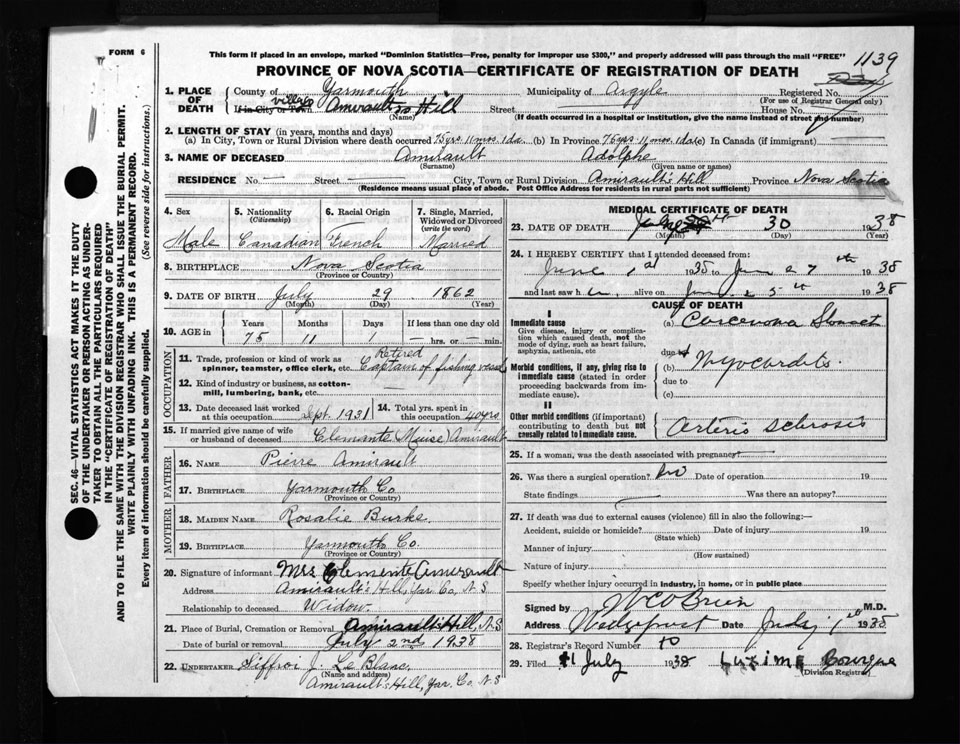 FORM 6
This form if placed in an envelope, marked "Dominion Statistics—Free, penalty for improper use $300," and properly addressed will pass through the mail "FREE"
1139
PROVINCE OF NOVA SCOTIA—CERTIFICATE OF REGISTRATION OF DEATH
1. PLACE OF DEATH
County of Yarmouth Municipality of Argyle Registered No.
(For use of Registrar General only)
If in City or Town village Amirault's Hill Street House No.
(Name) (If death occurred in a hospital or institution, give the name instead of street and number)
2. LENGTH OF STAY (in years, months and days)
(a) In City, Town or Rural Division where death occurred 75 yrs. 11 mos. 1 da. (b) In Province 75 yrs. 11 mos. 1 da (c) In Canada (if immigrant)
3. NAME OF DECEASED Amirault Adolphe
(Surname) (Given name or names)
RESIDENCE No. — Street — City, Town or Rural Division Amirault's Hill Province Nova Scotia
(Residence means usual place of abode. Post Office Address for residents in rural parts not sufficient)
4. Sex
Male
5. Nationality
(Citizenship)
Canadian
6. Racial Origin
French
7. Single, Married, Widowed or Divorced
(write the word)
Married
8. BIRTHPLACE Nova Scotia
(Province or Country)
9. DATE OF BIRTH July 29 1862
(Month) (Day) (Year)
10. AGE in Years Months Days If less than one day old
75 11 1 — hrs. or — min.
OCCUPATION
11. Trade, profession or kind of work as spinner, teamster, office clerk, etc. Retired Captain of fishing vessel
12. Kind of industry or business, as cotton-mill, lumbering, bank, etc.
13. Date deceased last worked at this occupation Sept. 1931
14. Total yrs. spent in this occupation 40 yrs
15. If married give name of wife or husband of deceased Clemente (Muise) Amirault
FATHER
16. NAME Pierre Amirault
17. BIRTHPLACE Yarmouth Co
(Province or Country)
MOTHER
18. MAIDEN NAME Rosalie Burke.
19. BIRTHPLACE Yarmouth Co.
(Province or Country)
20. Signature of informant Mrs Clemente Amirault
Address Amirault's Hill, Yar. Co, N S
Relationship to deceased Widow.
21. Place of Burial, Cremation or Removal Amirault's Hill, N.S
Date of burial or removal July 2nd 1938
22. UNDERTAKER J. Le Blanc,
(Name and address)
Amirault's Hill, Yar. Co. N S
MEDICAL CERTIFICATE OF DEATH
23. DATE OF DEATH 30 1938
(Month) (Day) (Year)
24. I HEREBY CERTIFY that I attended deceased from:
June 1st 1938 to June 27th 1938
and last saw h alive on June 25th 1938
CAUSE OF DEATH
I
Immediate cause
Give disease, injury or complication which caused death, not the mode of dying, such as heart failure, asphyxia, asthenia, etc
(a)
due to
Morbid conditions, if any, giving rise to immediate cause (stated in order proceeding backwards from immediate cause)
(b) Myocardits.
due to
(c)
II
Other morbid conditions (if important) contributing to death but not causally related to immediate cause.
Arterio sclerosis
25. If a woman, was the death associated with pregnancy
26. Was there a surgical operation? No Date of operation 19
State findings Was there an autopsy?
27. If death was due to external causes (violence) fill in also the following:—
Accident, suicide or homicide? Date of injury 19
(State which)
Manner of injury
(How sustained)
Nature of injury
Specify whether injury occurred in industry, in home, or in public place
Signed by W C O'Brien M.D.
Address Wedgeport Date July 1st 1938
28. Registrar's Record Number 10
29. Filed 1 July 1938 Bourque
(Division Registrar)
SEC. 46—VITAL STATISTICS ACT MAKES IT THE DUTY OF THE UNDERTAKER OR PERSON ACTING AS UNDERTAKER TO OBTAIN ALL THE PARTICULARS REQUIRED IN THE "CERTIFICATE OF REGISTRATION OF DEATH" AND TO FILE THE SAME WITH THE DIVISION REGISTRAR WHO SHALL ISSUE THE BURIAL PERMIT.
WRITE PLAINLY WITH UNFADING INK. THIS IS A PERMANENT RECORD.
Every item of information should be carefully supplied. (See reverse side for instructions.)